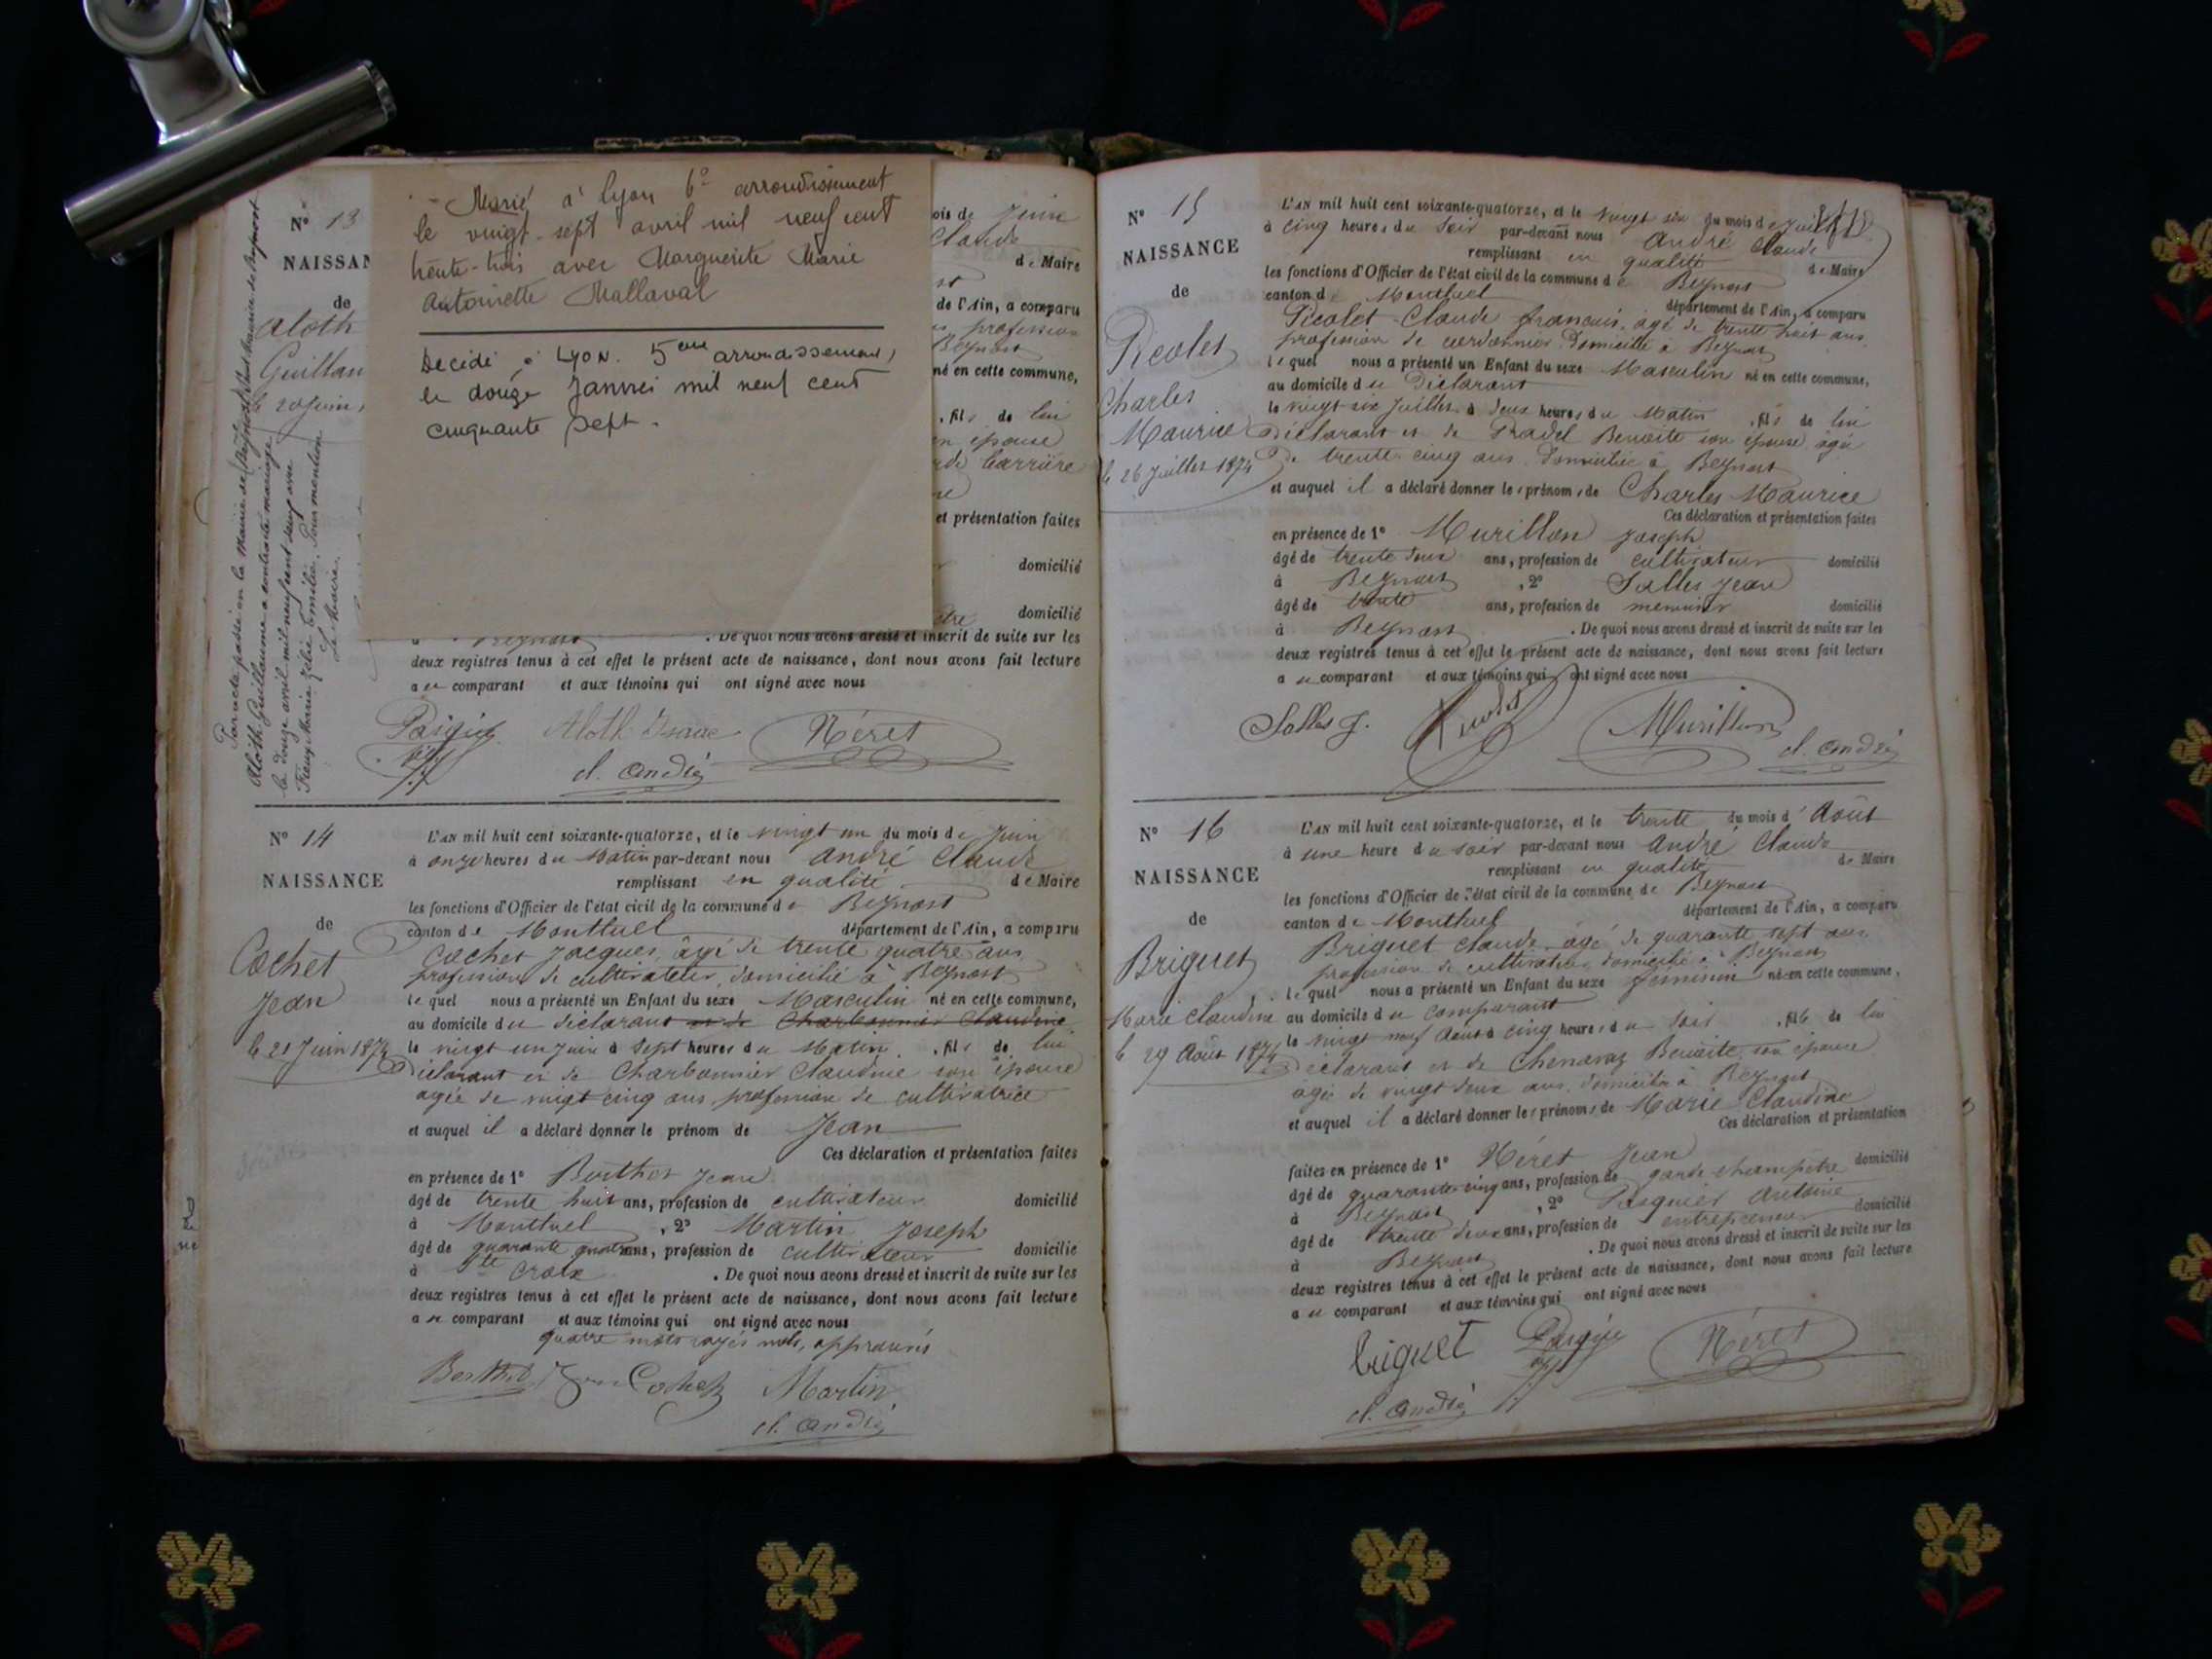 Par acte passé en la mairie de Beynost
Aloth Guillaume a contracté mariage
le douze avril mil neuf cent
Marie Zélie Emilie. Pour mention
Le Maire
N° 13
NAISSAN
de
Aloth
Guillau
le 20 juin 1
- Marié à Lyon 6e arrondissement
le vingt-sept avril mil neuf cent
trente-trois avec Marguerite Marie
Antoinette Mallaval
Décédé à Lyon. 5eme arrondissement,
le douze Janvier mil neuf cent
cinquante sept.
ois de Juin
Claude
de Maire
de l'Ain, a comparu
profession
Beynost
né en cette commune,
, fils de lui
épouse
carrière
et présentation faites
domicilié
domicilié
à Beynost . De quoi nous avons dressé et inscrit de suite sur les
deux registres tenus à cet effet le présent acte de naissance, dont nous avons fait lecture
au comparant et aux témoins qui ont signé avec nous
Aloth Isaac Néret
cl. André
N° 14
NAISSANCE
de
Cochet
Jean
le 21 Juin 1874
L'AN mil huit cent soixante-quatorze, et le vingt un du mois de Juin
à onze heures du Matin par-devant nous André Claude
remplissant en qualité de Maire
les fonctions d'Officier de l'état civil de la commune de Beynost
canton de Montluel département de l'Ain, a comparu
Cochet Jacques, âgé de trente quatre ans
profession de cultivateur, domicilié à Beynost
lequel nous a présenté un Enfant du sexe Masculin né en cette commune,
au domicile du déclarant et de Charbonnier Claudine
le vingt un Juin à sept heures du Matin , fils de lui
déclarant et de Charbonnier Claudine son épouse
agée de vingt cinq ans, profession de cultivatrice
et auquel il a déclaré donner le prénom de Jean
Ces déclaration et présentation faites
en présence de 1° Berthet Jean
âgé de trente huit ans, profession de cultivateur domicilié
à Montluel , 2° Martin Joseph
âgé de quarante quatre ans, profession de cultivateur domicilié
à Ste Croix . De quoi nous avons dressé et inscrit de suite sur les
deux registres tenus à cet effet le présent acte de naissance, dont nous avons fait lecture
au comparant et aux témoins qui ont signé avec nous
quatre mots rayés nuls, approuvés
Cochet Martin
cl. André
N° 15
NAISSANCE
de
Picolet
Charles
Maurice
le 26 Juillet 1874
L'AN mil huit cent soixante-quatorze, et le vingt six du mois de Juillet
à cinq heures du Soir par-devant nous André Claude
remplissant en qualité de Maire
les fonctions d'Officier de l'état civil de la commune de Beynost
canton de Montluel département de l'Ain, a comparu
Picolet Claude François, agé de trente huit ans,
profession de cordonnier domicilié à Beynost
lequel nous a présenté un Enfant du sexe Masculin né en cette commune,
au domicile du Déclarant
le vingt-six Juillet à deux heures du Matin , fils de lui
déclarant et de Pradel Benoite son épouse agée
de trente cinq ans domiciliée à Beynost
et auquel il a déclaré donner les prénoms de Charles Maurice
Ces déclaration et présentation faites
en présence de 1° Murillon Joseph
âgé de trente deux ans, profession de cultivateur domicilié
à Beynost , 2° Salles Jean
âgé de trente ans, profession de menuisier domicilié
à Beynost . De quoi nous avons dressé et inscrit de suite sur les
deux registres tenus à cet effet le présent acte de naissance, dont nous avons fait lecture
au comparant et aux témoins qui ont signé avec nous
Salles J. Murillon
cl. André
N° 16
NAISSANCE
de
Briguet
Marie Claudine
le 29 Août 1874
L'AN mil huit cent soixante-quatorze, et le trente du mois d'Août
à une heure du soir par-devant nous André Claude
remplissant en qualité de Maire
les fonctions d'Officier de l'état civil de la commune de Beynost
canton de Montluel département de l'Ain, a comparu
Briguet Claude, âgé de quarante sept ans
profession de cultivateur domicilié à Beynost
lequel nous a présenté un Enfant du sexe féminin né en cette commune,
au domicile du comparant
le vingt neuf Août à cinq heures du soir , fille de lui
déclarant et de Chenavaz Benoite son épouse
agée de vingt deux ans domiciliée à Beynost
et auquel il a déclaré donner les prénoms de Marie Claudine
Ces déclaration et présentation
faites en présence de 1° Néret Jean
âgé de quarante-cinq ans, profession de garde champêtre domicilié
à Beynost , 2° Pasquier Antoine
âgé de trente deux ans, profession de entrepreneur domicilié
à Beynost . De quoi nous avons dressé et inscrit de suite sur les
deux registres tenus à cet effet le présent acte de naissance, dont nous avons fait lecture
au comparant et aux témoins qui ont signé avec nous
briguet Néret
cl. André